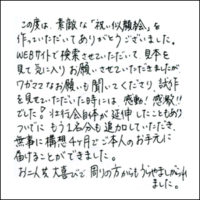 この度は、素敵な「祝い似顔絵」を
作っていただいてありがとうございました。
WEBサイトで検索させていただいて、見本を
見て気に入りお願いさせていただきましたが
ワガママなお願いも聞いてくださり、試作
を見せていただいた時には感動!感激!!
でした!壮行会自体が延伸したこともあり
ついでにもう1名分も追加していただき、
無事に構想4ヶ月でご本人のお手元に
届けることができました。
お二人共大喜びで周りの方からもうらやましがられ
ました。